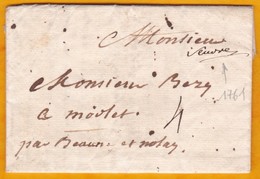 Monsieur
Seurre
Monsieur Bezy
à molet
4
1761
par Beaune et nolay